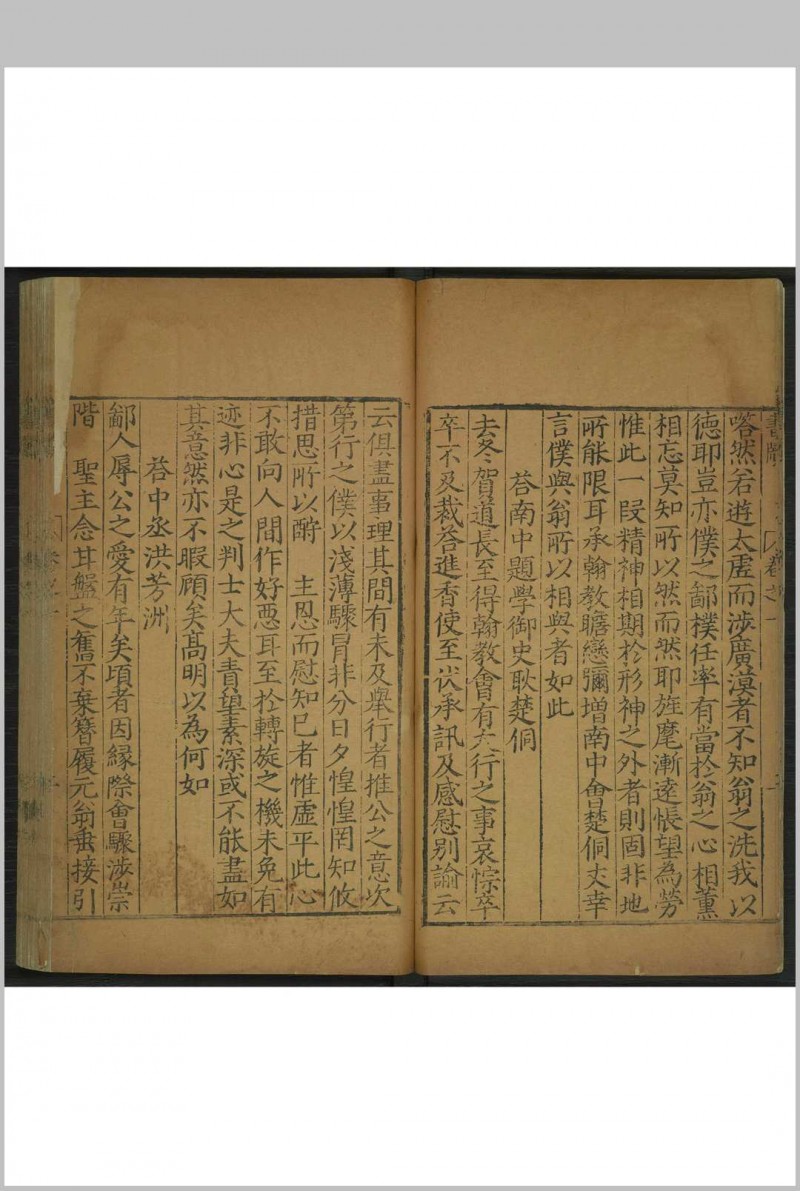 書牘 卷之一
喀然若遊太虛而涉廣漠者不知翁之洗我以
德耶豈亦僕之鄙樸任率有當扵翁之心相薰
相忘莫知所以然而然耶旌麾漸逺悵望為勞
惟此一段精神相期扵形神之外者則固非地
所能限耳承翰教瞻戀彌增南中會楚侗丈幸
言僕與翁所以相與者如此
荅南中題學御史耿楚侗
去冬賀道長至得翰教會有大行之事哀悰卒
卒不及裁荅進香使至伏承訊及感慰别諭云
云俱盡事理其間有未及舉行者推公之意次
第行之僕以淺薄驟冐非分日夕惶惶罔知攸
措思所以酧 主恩而慰知巳者惟虛平此心
不敢向人間作好惡耳至扵轉旋之機未免有
迹非心是之判士大夫責望素深或不能盡如
其意然亦不暇顧矣髙明以為何如
荅中丞洪芳洲
鄙人辱公之愛有年矣頃者因緣際會驟涉崇
階 聖主念甘盤之舊不棄簪履元翁垂接引